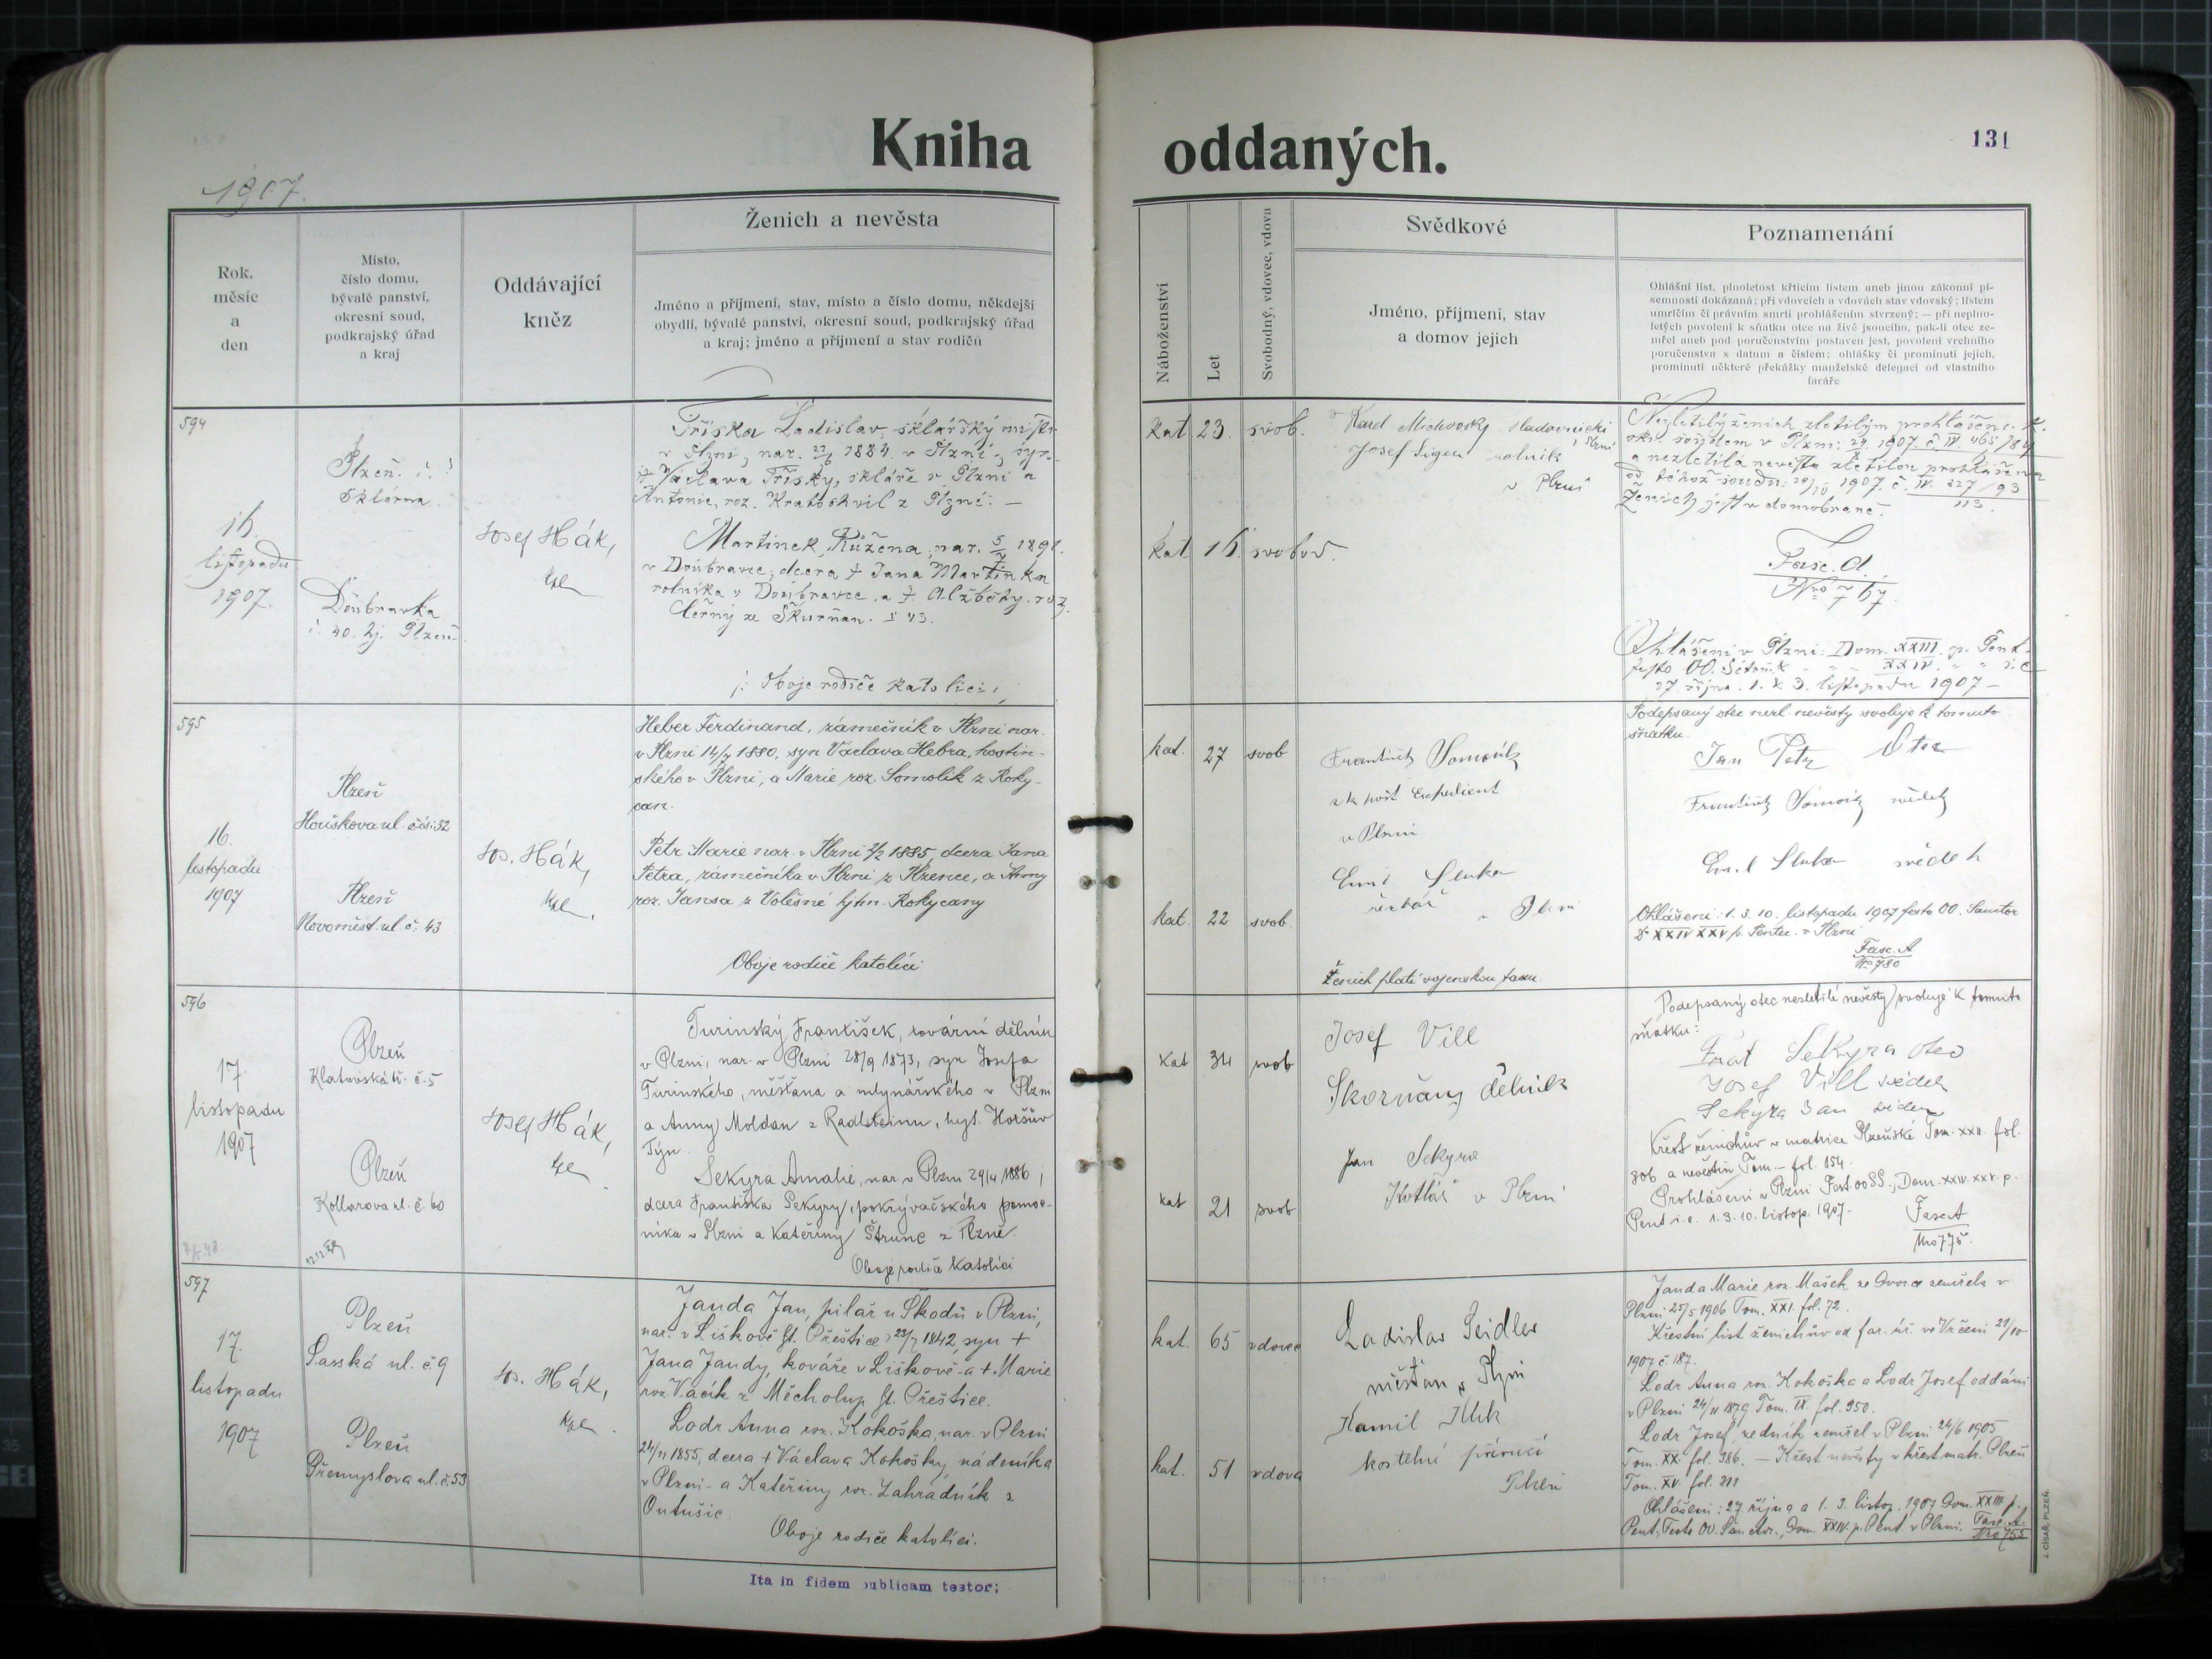 Kniha
oddaných.
131
1907.
Rok,
měsíc
a
den
Místo,
číslo domu,
bývalé panství,
okresní soud,
podkrajský úřad
a kraj
Oddávající
kněz
Ženich a nevěsta
Jméno a příjmení, stav, místo a číslo domu, někdejší
obydlí, bývalé panství, okresní soud, podkrajský úřad
a kraj; jméno a příjmení a stav rodičů
Náboženství
Let
Svobodný, vdovec, vdova
Svědkové
Jméno, příjmení, stav
a domov jejich
Poznamenání
Ohlášní list, plnoletost křticím listem aneb jinou zákonní pí-
semností dokázaná; při vdovcích a vdovách stav vdovský; listem
umrlčím či právním smrti prohlášením stvrzený; — při neplno-
letých povolení k sňatku otce na živě jsoucího, pak-li otec ze-
mřel aneb pod poručenstvím postaven jest, povolení vrchního
poručenstva s datum a číslem; ohlášky či prominutí jejich,
prominutí některé překážky manželské delegací od vlastního
faráře
594
16.
listopadu
1907.
Plzeň
Sklárna.
Doubravka
č. 40. hj. Plzeň
Josef Hák,
Tříska Ladislav, sklářský mistr
v Plzni, nar. 1884 v Plzni, syn
Václava Třísky, skláře v Plzni a
Antonie, roz. Kratochvil z Plzně. —
Martinek Růžena, nar. 1891
v Doubravce, dcera † Jana Martinka
rolníka v Doubravce a † Alžběty roz.
Černý ze Škurňan. č 43.
Oboje rodiče katolíci
kat 23. svob.
kat 16. svobod.
Karel
Josef rolník
v Plzni
Nezletilý ženich zletilým prohlášen c. k.
okr. soudem v Plzni 1907 č. IV 465/84
a nezletilá nevěsta zletilou prohlášena
od téhož soudu 1907. č. IV. 227/93
113.
Ženich jest v domobraně.
Fasc. A.
Nro 767.
Ohlášeni v Plzni: Dom. XXIII. p. Pent.
festo OO. Sctor. & XXIV. i. e.
27. října. 1. & 3. listopadu 1907 —
595
16.
listopadu
1907
Plzeň
Houškova ul. čís. 32
Plzeň
Novoměst. ul. č. 43
Jos. Hák,
Heber Ferdinand, zámečník v Plzni nar.
v Plzni 1880, syn Václava Hebra, hostin-
ského v Plzni, a Marie roz. Somolík z Roky-
can.
Petr Marie nar. v Plzni 1885, dcera Jana
Petra, zámečníka v Plzni z Plzence, a Anny
roz. Jansa z Volešné hjtm. Rokycany
Oboje rodiče katolíci
kat. 27 svob
kat. 22 svob.
František
v Plzni
Emil
Ženich platí vojenskou taxu.
Podepsaný otec nezl. nevěsty svoluje k tomuto
sňatku.
Jan Petr Otec
František svědek
Emil svědek
Ohlášeni: 1. 3. 10. listopadu 1907 festo OO. Sanctor
D. XXIV XXV p. Pentec. v Plzni
Fasc. A
No 780
596
17.
listopadu
1907
Plzeň
Klatovská tř. č. 5
Plzeň
Kollarova ul. č. 60
Josef Hák,
Turinský František, tovární dělník
v Plzni, nar. v Plzni 28/9 1873, syn Josefa
Turinského, měšťana a mlynářského v Plzni
a Anny Moldan z Radlsteinu, hejt. Horšův
Týn.
Sekyra Amalie, nar. v Plzni 29/4 1886,
dcera Františka Sekyry, pokrývačského pomoc-
níka v Plzni a Kateřiny Štrunc z Plzně.
Oboje rodiče katolíci
kat 34 svob
kat 21 svob
Josef Vill
Skorňany dělník
Jan Sekyra
Kotlář v Plzni
Podepsaný otec nezletilé nevěsty svoluje k tomuto
sňatku:
Frat Sekyra otec
Josef Vill svědek
Sekyra Jan
Křest ženichův v matrice Plzeňské Tom. XXII. fol.
306 a nevěstin Tom. — fol. 154.
Prohlášeni v Plzni Fest. OO SS., Dom. XXIV. XXV. p.
Pent. i. e. 1. 3. 10. listop. 1907.
Fasc A
Nro 775.
597
17.
listopadu
1907
Plzeň
Saská ul. č. 9
Plzeň
Přemyslova ul. č. 53
Jos. Hák,
Janda Jan, pilař u Škodů v Plzni,
nar. v Liškově hjt. Přeštice 1842, syn †
Jana Jandy, kováře v Liškově a †. Marie
roz. Vacík z Měcholup hjt. Přeštice.
Lodr Anna roz. Kokoška, nar. v Plzni
24/11 1855, dcera † Václava Kokošky, nádeníka
v Plzni a Kateřiny roz. Zahradník z
Ontušic.
Oboje rodiče katolíci.
kat. 65 vdovec
kat. 51 vdova
Ladislav Seidler
měšťan v Plzni
Kamil
kostelní
Plzeň
Janda Marie roz. Mašek ze Dvorce zemřela v
Plzni 25/5 1906 Tom. XXI. fol. 72.
Křestní list ženichův od far. úř. ve Vrčeni 21/10
1907 č. 187.
Lodr Anna roz. Kokoška a Lodr Josef oddáni
v Plzni 24/11 1879 Tom. IX. fol. 350.
Lodr Josef, zedník zemřel v Plzni 24/6 1905
Tom. XX. fol. 386. — Křest nevěsty v křest. matr. Plzeň
Tom. XV. fol. 311
Ohlášeni: 27. října a 1. 3. listop. 1907 Dom. XXIII p.
Pent., Festo OO. Sanctor., Dom. XXIV. p. Pent. v Plzni. Fasc. A.
Nro 755
Ita in fidem publicam testor:
J. CÍSAŘ, PLZEŇ.